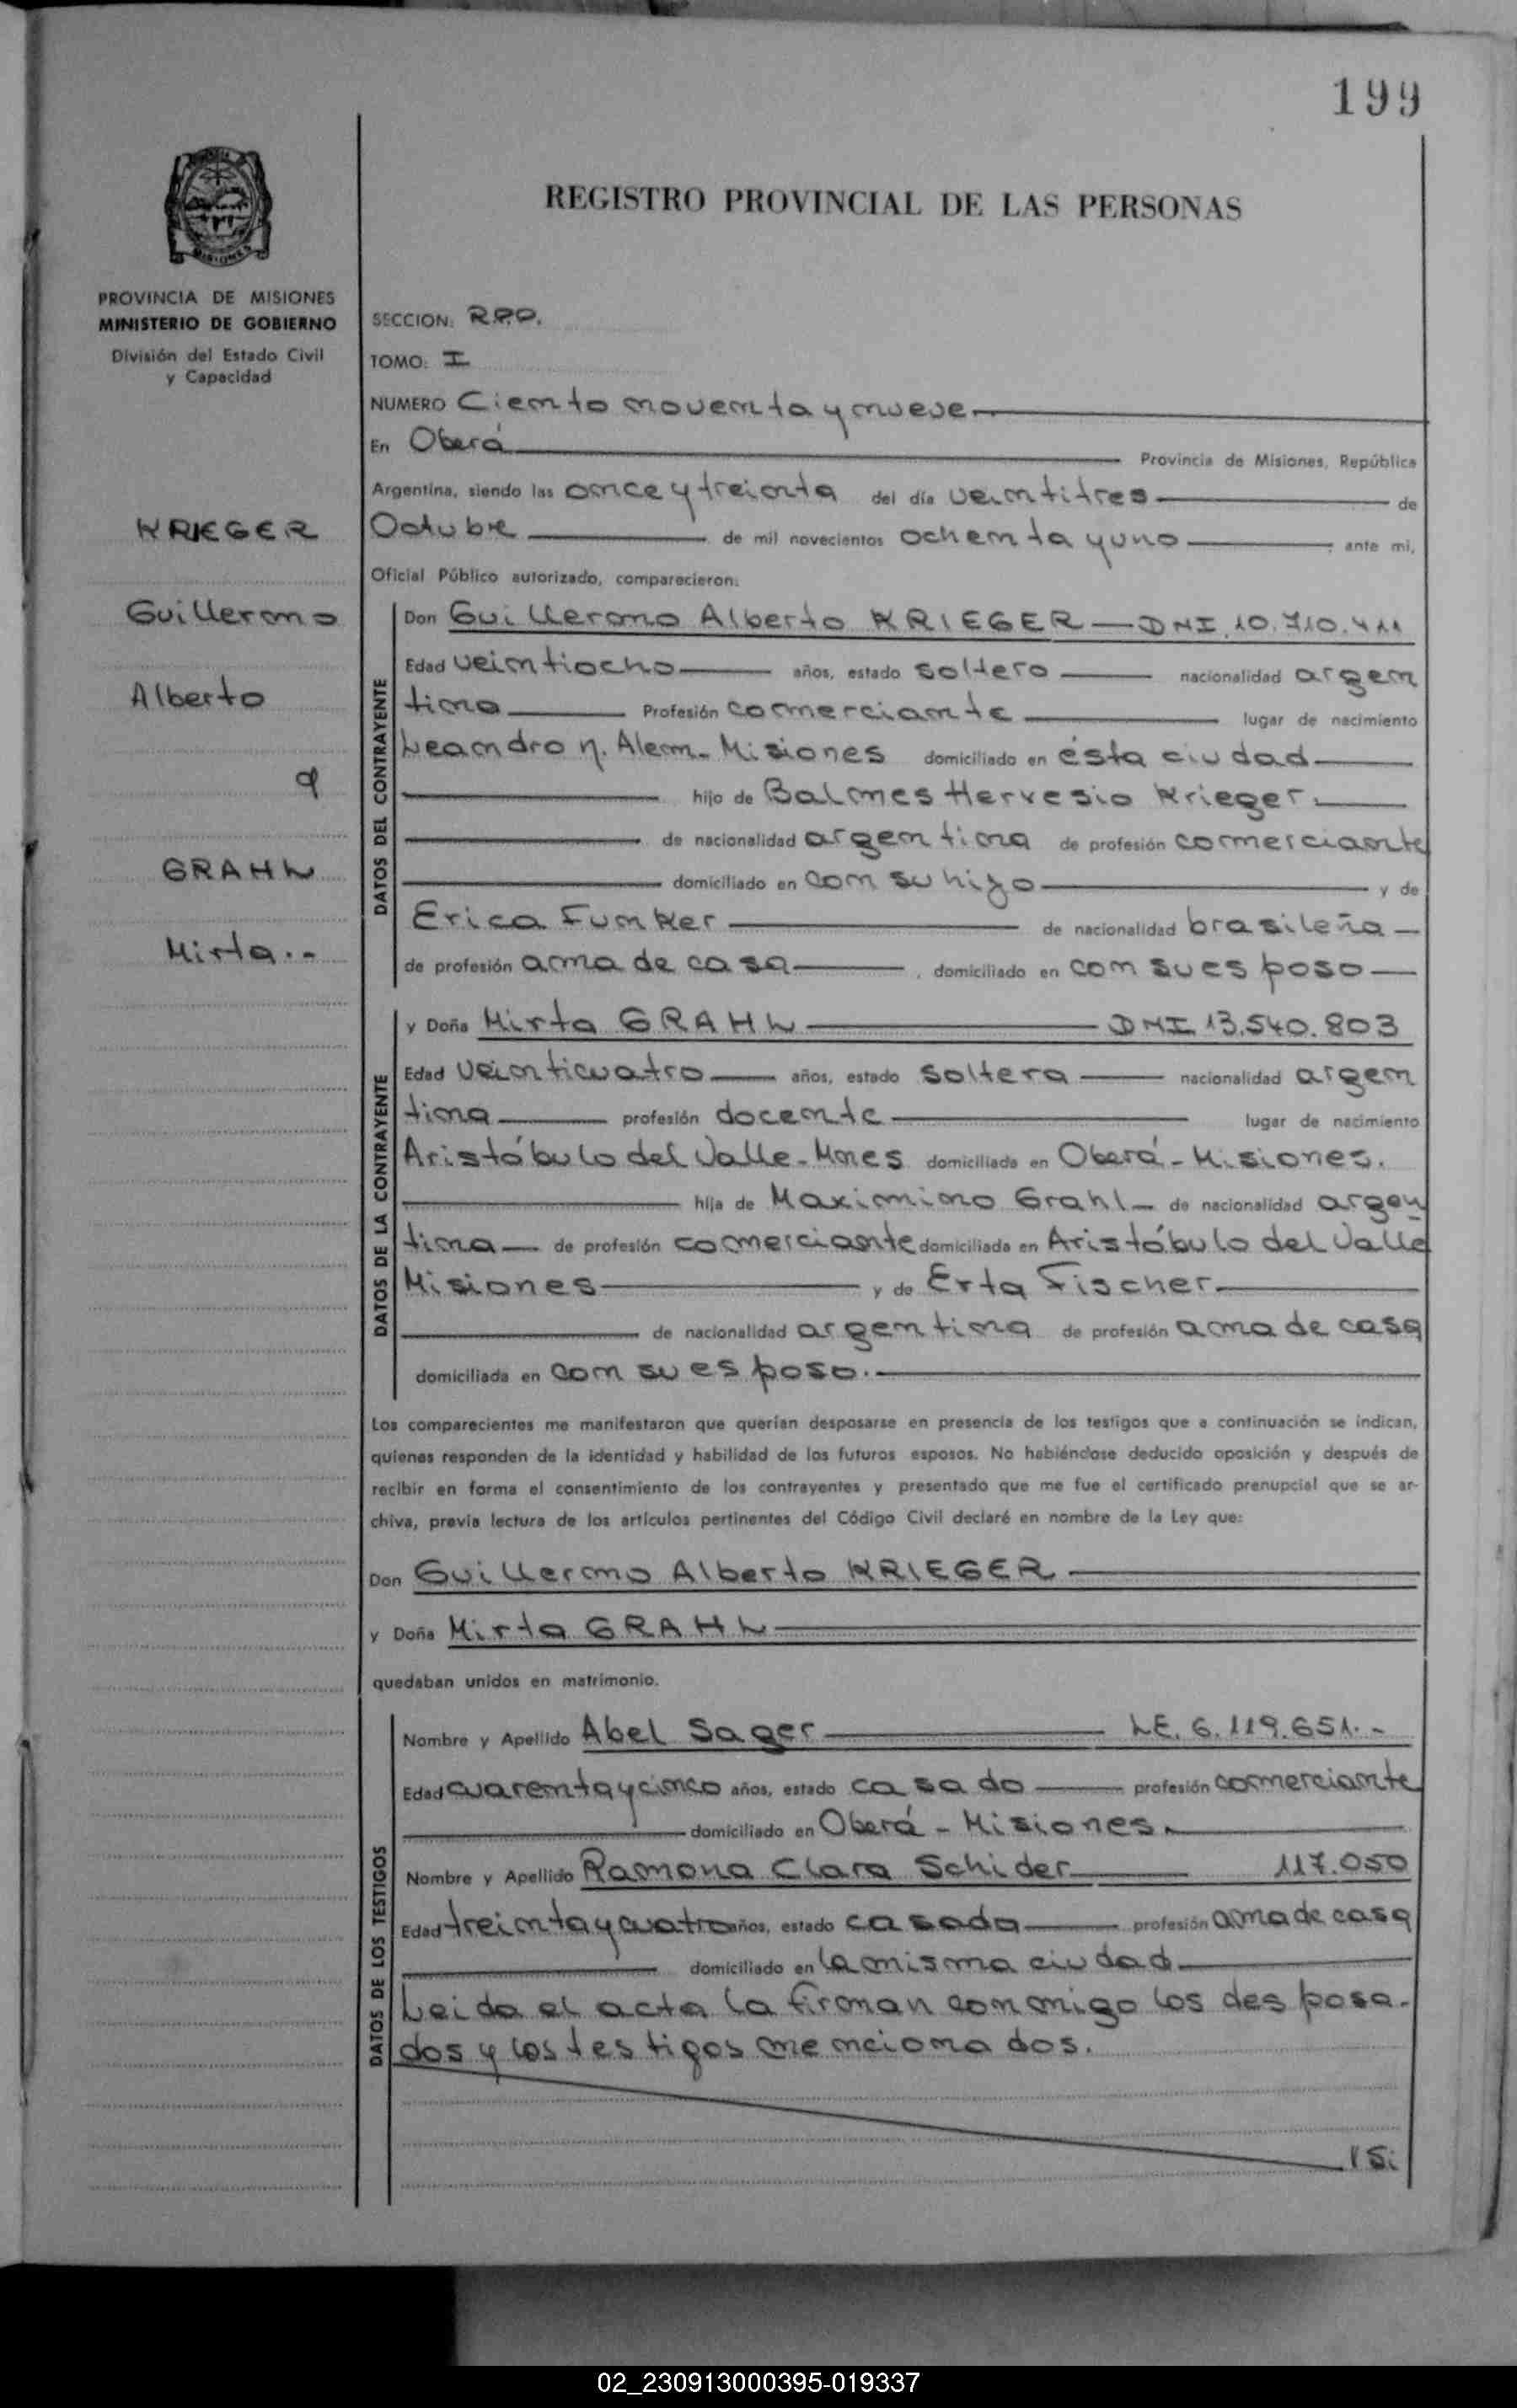 199
REGISTRO PROVINCIAL DE LAS PERSONAS
MISIONES
PROVINCIA DE MISIONES
MINISTERIO DE GOBIERNO
División del Estado Civil
y Capacidad
KRIEGER
Guillermo
Alberto
y
GRAHL
Mirta.-
SECCION: R.P.P.
TOMO: I
NUMERO Ciento noventa y nueve
En Oberá Provincia de Misiones, República
Argentina, siendo las once y treinta del día veintitres de
Octubre de mil novecientos ochenta y uno ; ante mi,
Oficial Público autorizado, comparecieron:
DATOS DEL CONTRAYENTE
Don Guillermo Alberto KRIEGER — DNI. 10.710.411
Edad veintiocho años, estado soltero nacionalidad argen
tina Profesión comerciante lugar de nacimiento
Leandro N. Alem - Misiones domiciliado en ésta ciudad
hijo de Balmes Hervesio Krieger.
de nacionalidad argentina de profesión comerciante
domiciliado en con su hijo y de
Erica Funker de nacionalidad brasileña
de profesión ama de casa , domiciliado en con su esposo
DATOS DE LA CONTRAYENTE
y Doña Mirta GRAHL DNI 13.540.803
Edad veinticuatro años, estado soltera nacionalidad argen
tina profesión docente lugar de nacimiento
Aristóbulo del Valle - Mnes domiciliada en Oberá - Misiones.
hija de Maximino Grahl de nacionalidad argen
tina de profesión comerciante domiciliada en Aristóbulo del Valle
Misiones y de Erta Fischer
de nacionalidad argentina de profesión ama de casa
domiciliada en con su esposo.
Los comparecientes me manifestaron que querían desposarse en presencia de los testigos que a continuación se indican,
quienes responden de la identidad y habilidad de los futuros esposos. No habiéndose deducido oposición y después de
recibir en forma el consentimiento de los contrayentes y presentado que me fue el certificado prenupcial que se ar-
chiva, previa lectura de los artículos pertinentes del Código Civil declaré en nombre de la Ley que:
Don Guillermo Alberto KRIEGER
y Doña Mirta GRAHL
quedaban unidos en matrimonio.
DATOS DE LOS TESTIGOS
Nombre y Apellido Abel Sager LE. 6.119.651.-
Edad cuarenta y cinco años, estado casado profesión comerciante
domiciliado en Oberá - Misiones.
Nombre y Apellido Ramona Clara Schider 117.050
Edad treinta y cuatro años, estado casada profesión ama de casa
domiciliado en la misma ciudad
Leida el acta la firman conmigo los desposa-
dos y los testigos mencionados.
02_230913000395-019337